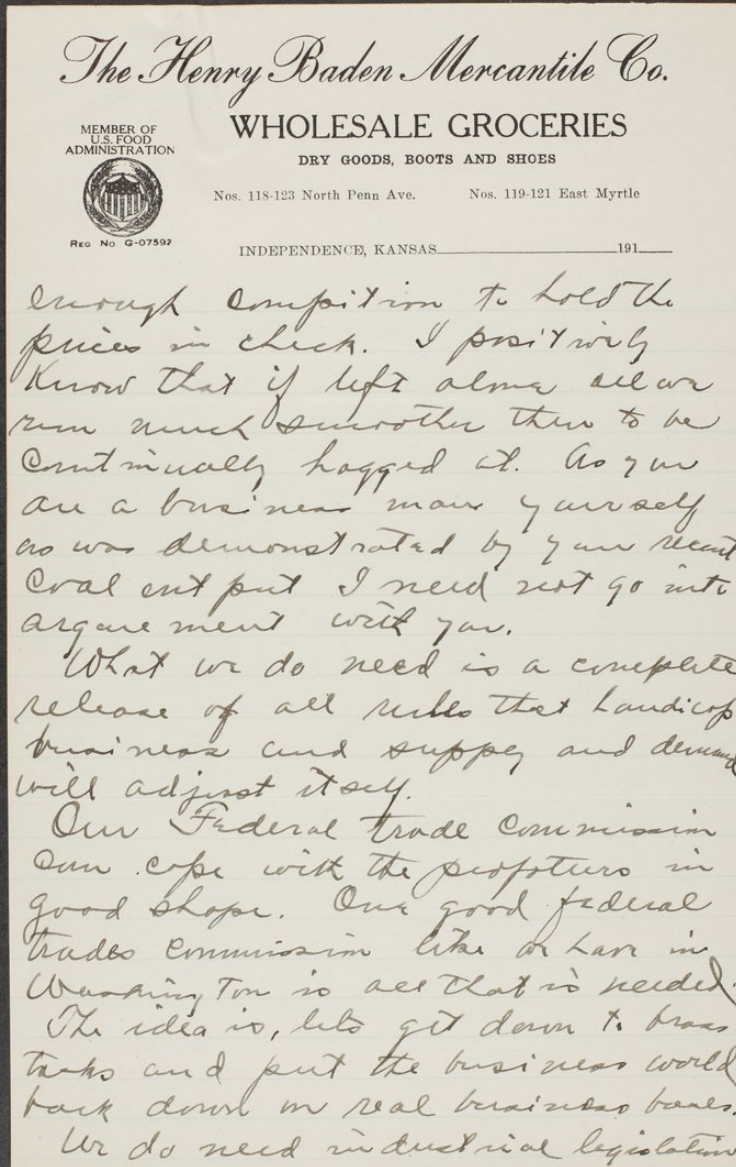 The Henry Baden Mercantile Co.
WHOLESALE GROCERIES
DRY GOODS, BOOTS AND SHOES
MEMBER OF
U.S. FOOD
ADMINISTRATION
REG NO G-07592
Nos. 118-123 North Penn Ave. Nos. 119-121 East Myrtle
INDEPENDENCE, KANSAS 191
enough compition to hold the
prices in check. I positively
Know that if left alone all will
run much smoother then to be
continually hagged at. As you
are a business man yourself
as was demonstrated by your recent
Coal out put I need not go into
arguement with you.
What we do need is a complete
release of all rules that handicap
business and supply and demand
will adjust itself.
Our Federal trade Commission
can cope with the profiteers in
good shape. One good federal
trades Commission like we have in
Washington is all that is needed.
The idea is, lets get down to brass
tacks and put the business world
back down on real business bases.
We do need industrial legislation